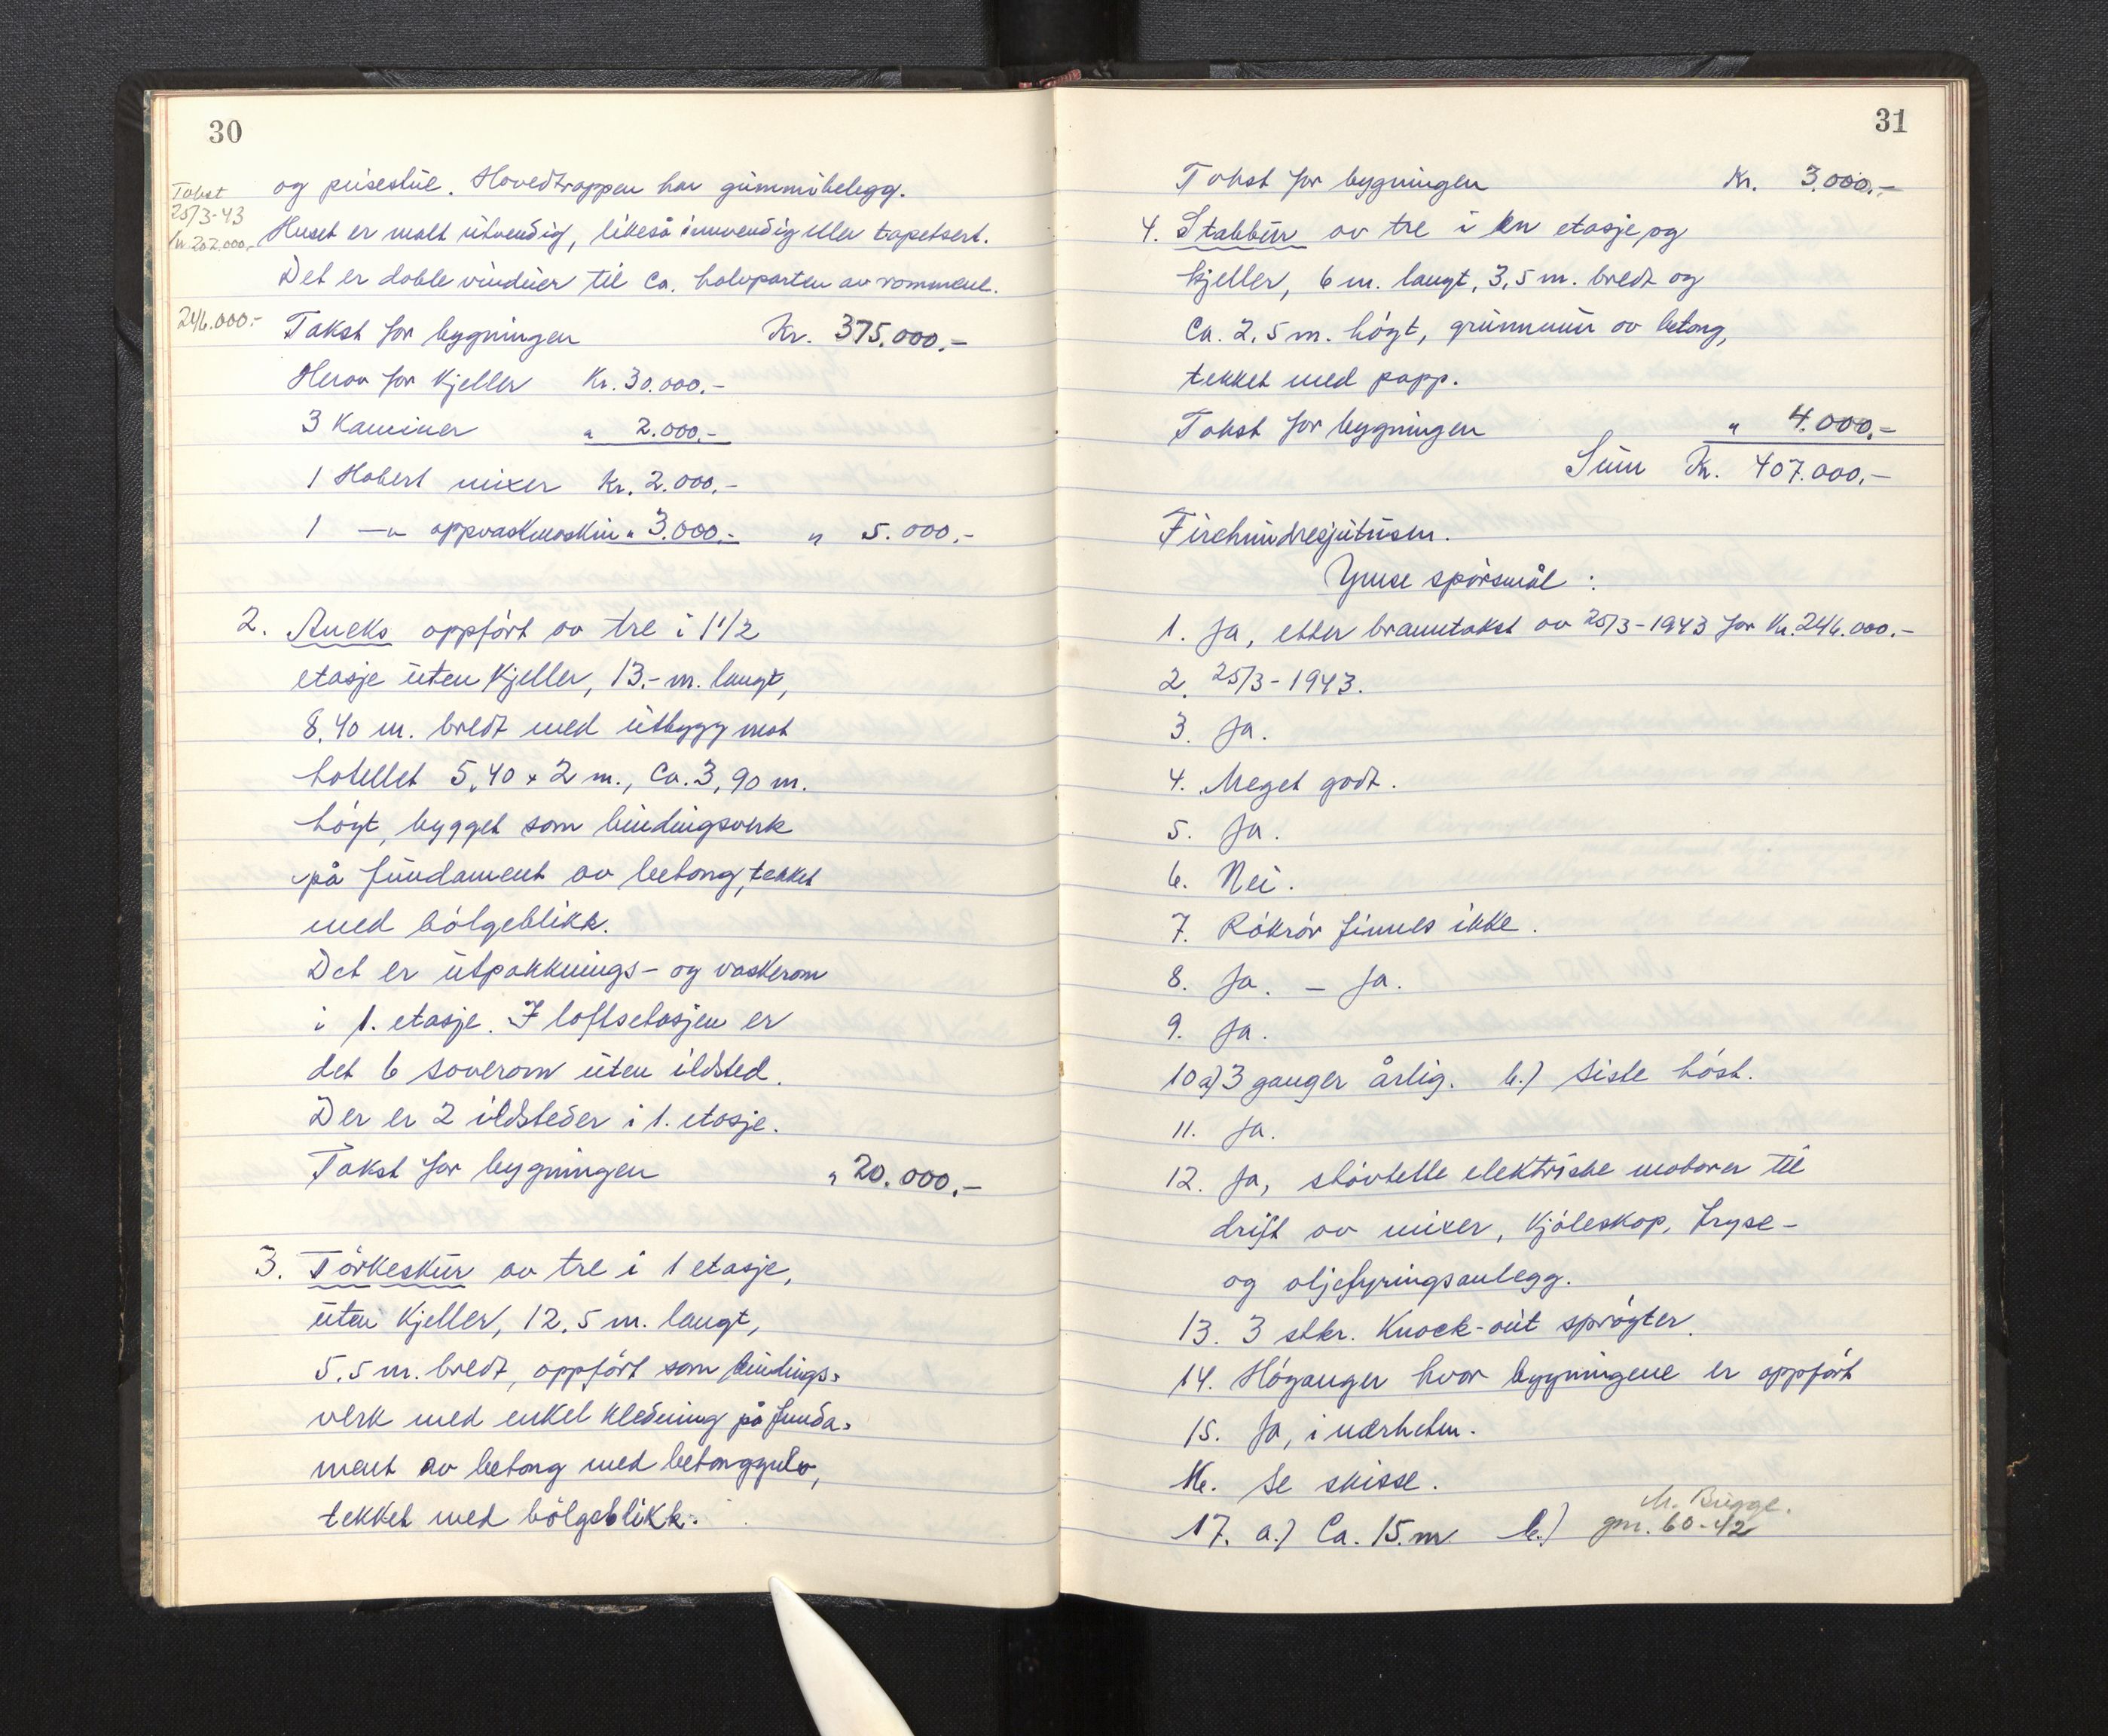 30
Takst
25/3-43
kr. 202.000,-
og peisestue. Hovedtrappen har gummibelegg.
Huset er malt utvendig, likeså innvendig eller tapetsert.
Det er doble vinduer til ca. halvparten av rommene.
246.000.-
Takst for bygningen Kr. 375.000.-
Herav for kjeller Kr. 30.000.-
3 Kaminer " 2.000.-
1 Hobert mixer Kr. 2.000.-
1 —"— oppvaskmaskin " 3.000.- " 5.000.-
2. Aneks oppført av tre i 1 1/2
etasje uten kjeller, 13.- m. langt,
8,40 m. bredt med utbygg mot
hotellet 5,40 x 2 m., ca. 3,90 m.
høgt, bygget som bindingsverk
på fundament av betong, tekket
med bølgeblikk.
Det er utpaknings- og vaskerom
i 1. etasje. I loftsetasjen er
det 6 soverom uten ildsted.
Der er 2 ildsteder i 1. etasje.
Takst for bygningen " 20.000.-
3. Tørkeskur av tre i 1 etasje,
uten kjeller, 12,5 m. langt,
5,5 m. bredt, oppført som bindings-
verk med enkel kledning på funda-
ment av betong med betonggulv,
tekket med bølgeblikk.
31
Takst for bygningen Kr. 3.000.-
4. Stabbur av tre i en etasje og
kjeller, 6 m. langt, 3,5 m. bredt og
ca. 2,5 m. høgt, grunnmur av betong,
tekket med papp.
Takst for bygningen " 4.000.-
Sum Kr. 407.000.-
Firehundresjutusen.
Ymse spørsmål :
1. Ja, etter branntakst av 25/3-1943 for Kr. 246.000.-
2. 25/3-1943.
3. Ja.
4. Meget godt.
5. Ja.
6. Nei.
7. Røkrør finnes ikke.
8. Ja. - Ja.
9. Ja.
10 a) 3 ganger årlig. b.) Siste høst.
11. Ja.
12. Ja, støvtette elektriske motorer til
drift av mixer, kjøleskap, fryse-
og oljefyringsanlegg.
13. 3 stkr. Knock-out sprøyter.
14. Høyanger hvor bygningene er oppført
15. Ja, i nærheten.
16. Se skisse.
17. a.) Ca. 15. m. b.)
M. Brügge.
gnr. 60-42